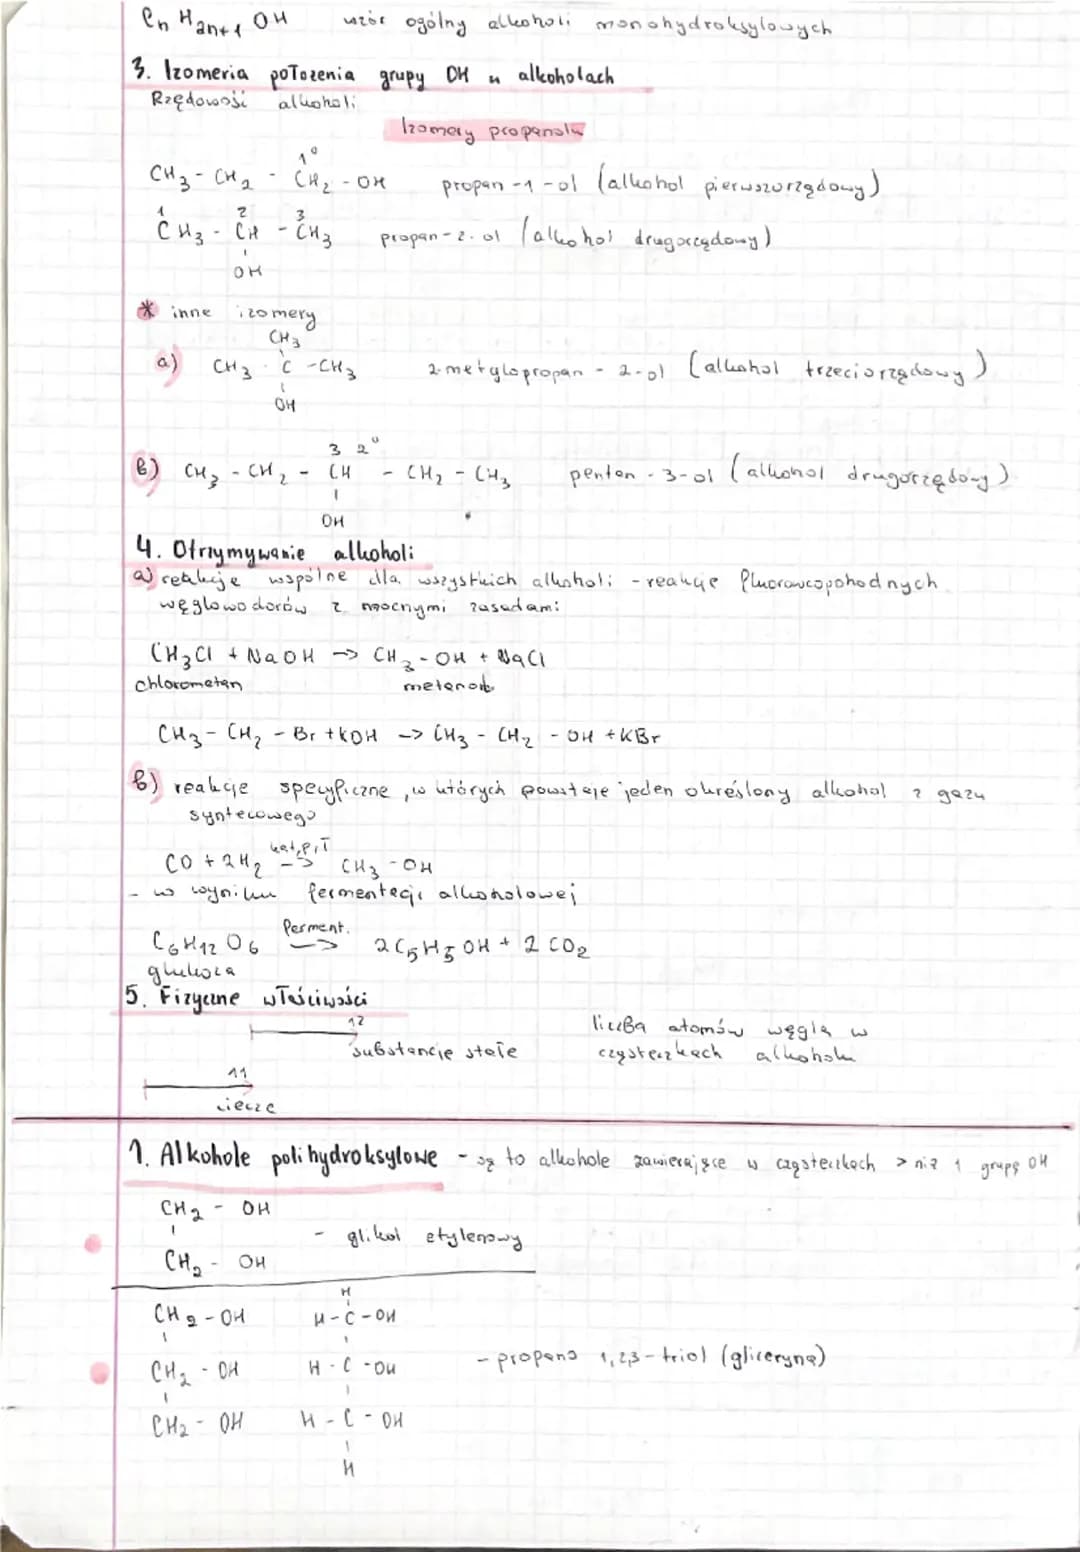 CnH2n+1 OH wzór ogólny alkoholi monohydroksylowych
3. Izomeria położenia grupy OH w alkoholach
Rzędowość alkoholi
Izomery propanolu
1°
CH3 - CH2 - CH2 - OH propan-1-ol (alkohol pierwszorzędowy)
1 2 3
CH3 - CH - CH3 propan-2-ol (alkohol drugorzędowy)
OH
* inne izomery
CH3
a) CH3 - C - CH3 2-metylopropan-2-ol (alkohol trzeciorzędowy)
OH
3 2°
b) CH3 - CH2 - CH - CH2 - CH3 pentan-3-ol (alkohol drugorzędowy)
OH
4. Otrzymywanie alkoholi
a) reakcje wspólne dla wszystkich alkoholi - reakcje fluorowcopohodnych
węglowodorów z mocnymi zasadami:
CH3Cl + NaOH -> CH3 - OH + NaCl
chlorometan metanol
CH3 - CH2 - Br + KOH -> CH3 - CH2 - OH + KBr
b) reakcje specyficzne, w których powstaje jeden określony alkohol z gazu
syntezowego
kat, p, T
CO + 2H2 -> CH3 - OH
- w wyniku fermentacji alkoholowej
ferment.
C6H12O6 -> 2C5H5OH + 2CO2
glukoza
5. Fizyczne właściwości
12 liczba atomów węgla w
substancje stałe cząsteczkach alkoholu
11
ciecze
1. Alkohole polihydroksylowe - są to alkohole zawierające w cząsteczkach > niż 1 grupę OH
CH2 - OH
- glikol etylenowy
CH2 - OH
H
CH2 - OH H - C - OH
CH2 - OH H - C - OH - propano 1,2,3-triol (gliceryna)
CH2 - OH H - C - OH
H